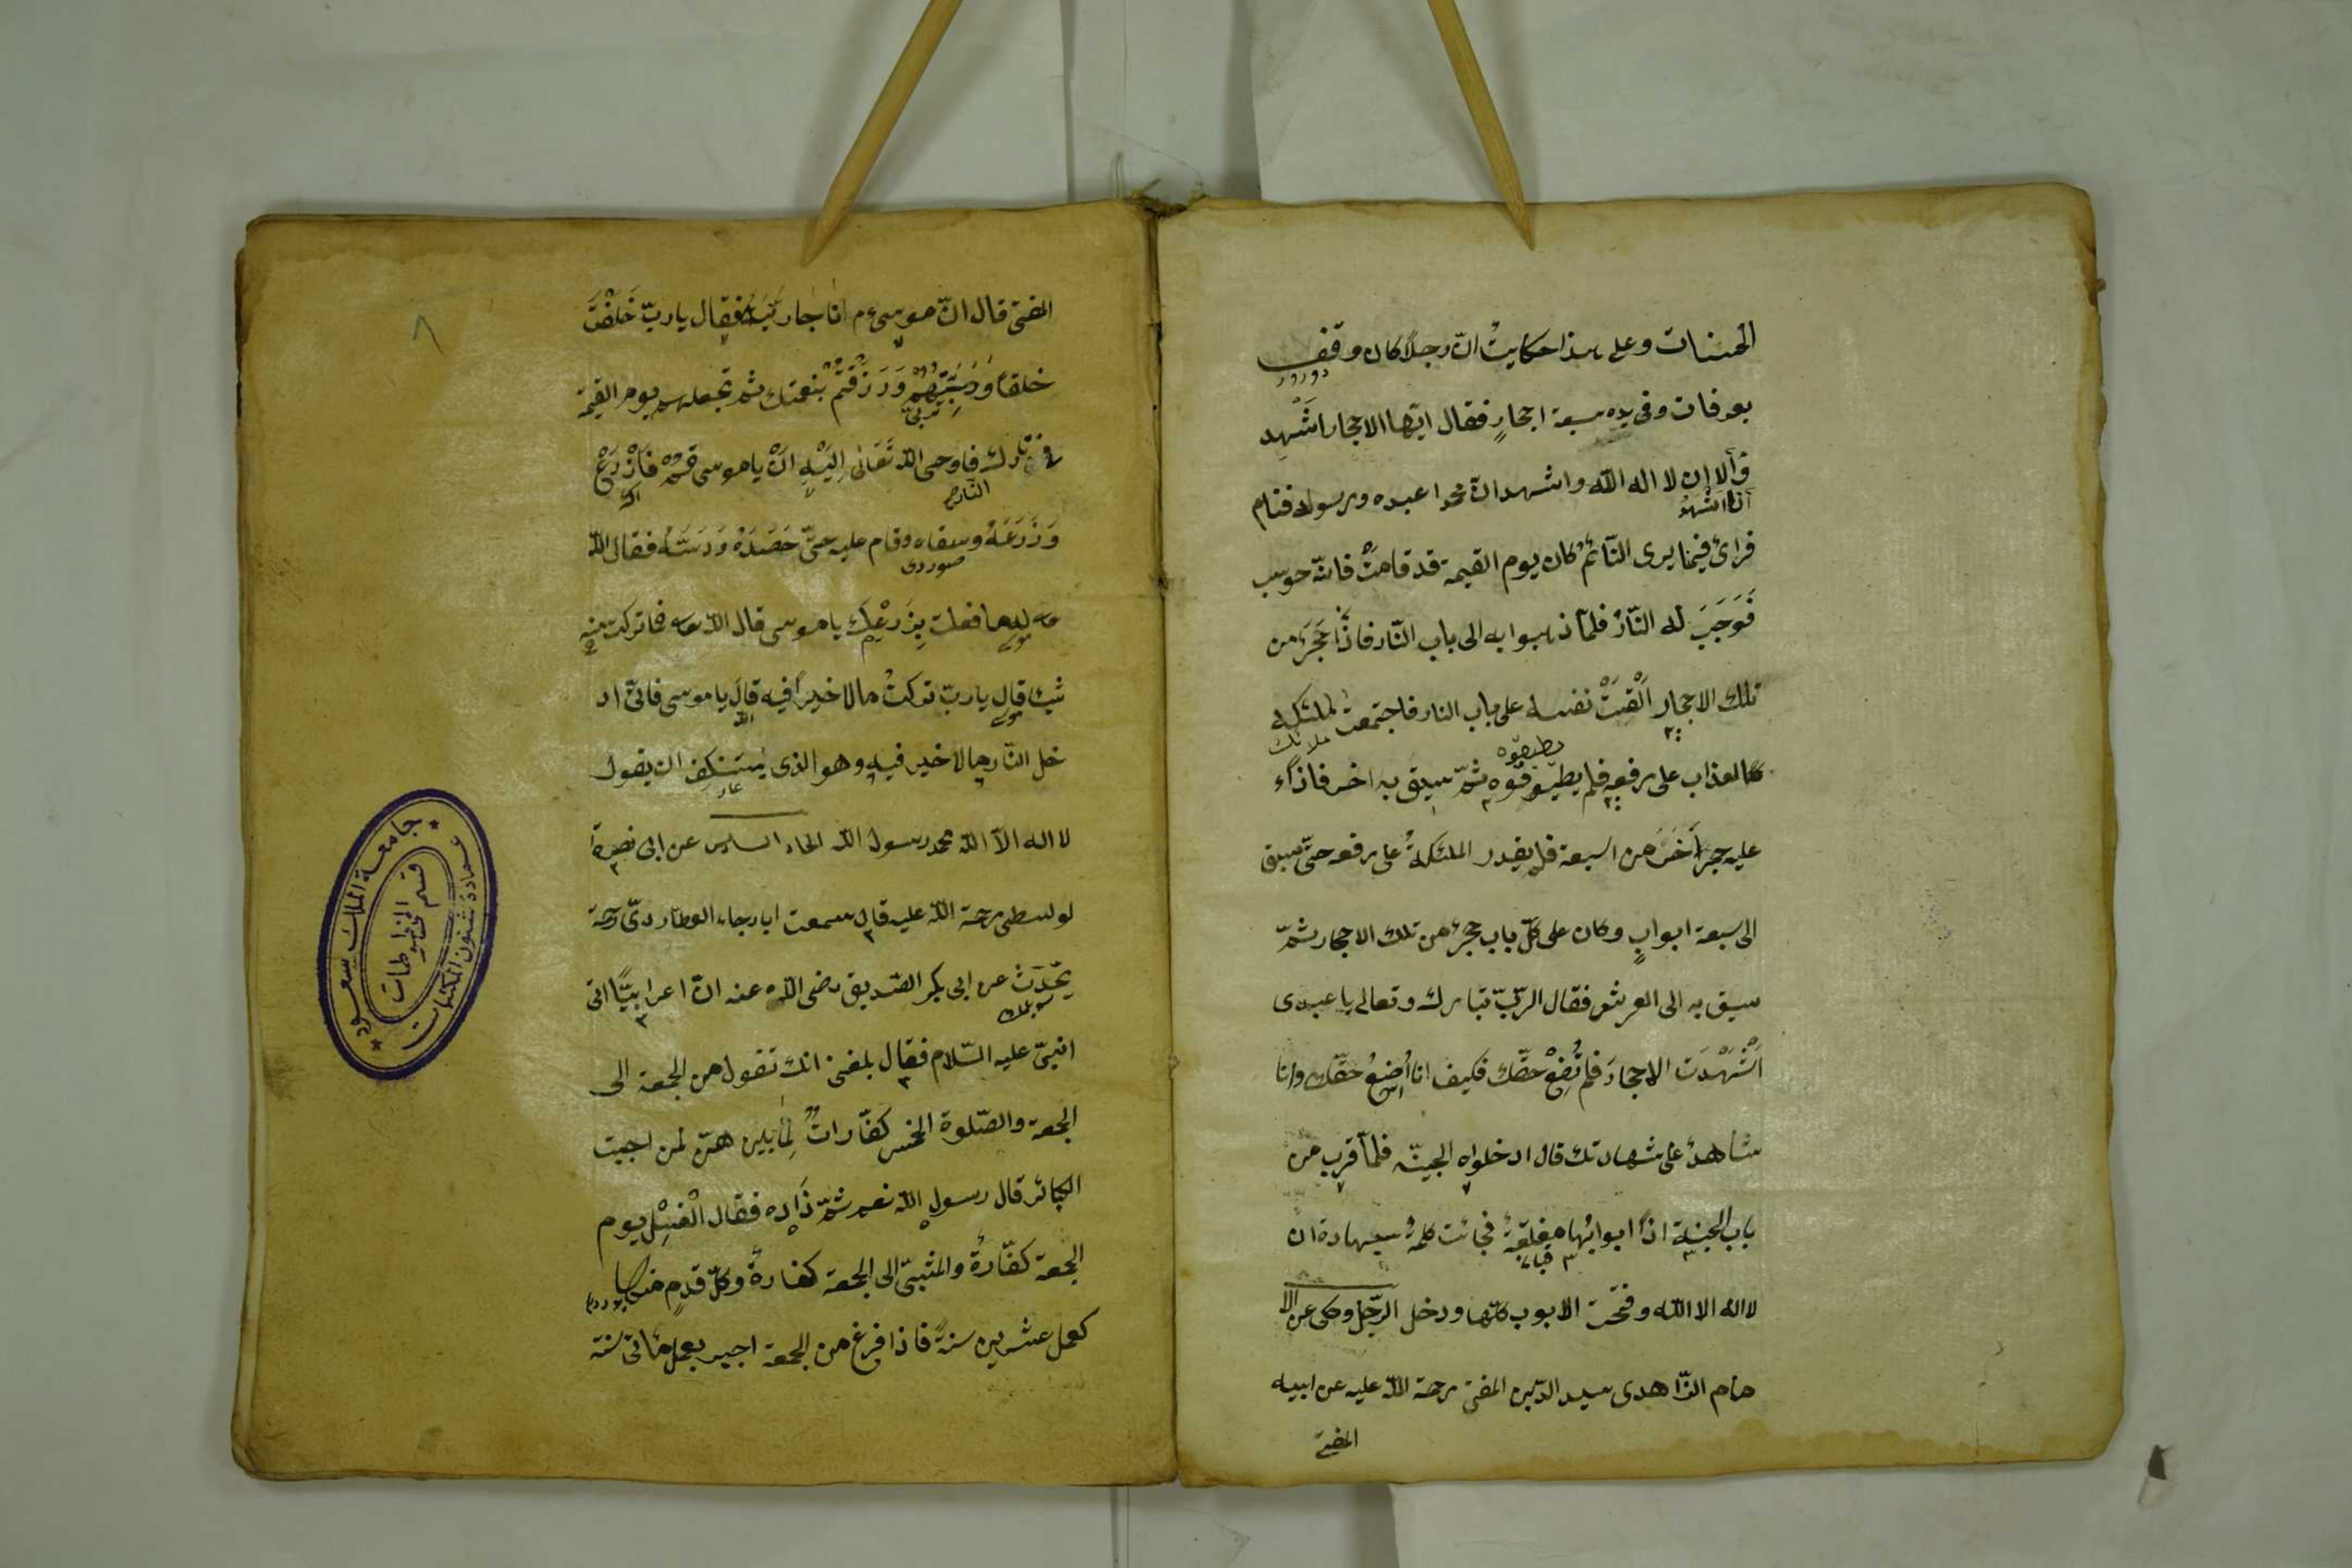 الحسنات وعلى هذا حكايتْ انّ رجلاً كان وقف
دورر
بعرفات وفى يده سبعة احجارٍ فقال ايّها الاحجار اشْهِد
وألا إن لا اله الله واشهد انّ محمدا عبده ورسوله فنام
آنا اشْهَدُ
فرائ فيما يرى النّائمُ كان يوم القيمة قد قامتْ فانّه حوسب
فَوَجَبَ له النّارُ فلمّا ذهبوا به الى باب النّار فاذَا حَجَرٌ من
تلك الاحجار اَلْقَتْ نفسه على باب النار فاجتمعت الملئكه
ملائك
العذاب على رفعه فلم يطيـوقوه ثمّ سيق به اخر فاذاً
يطيقوه
عليه حجر اَخَرُ من السبعة فلم يقدر الملئكةُ على رفعه حتّى سيق
الى سبعة ابوابٍ وكان على كلّ باب حجرٌ من تلك الاحجار ثمّ
سيق به الى العرش فقال الرّبّ تبارك وتعالى يا عبدى
اَشْهَدْتَ الاحجارَ فلم تُضِعْ حقّك فكيف انا اُضِيعُ حقّك وانا
شاهدٌ على شهادتك قال ادخلواه الجنّه فلمّا قرب من
باب الجنة اذاً ابوابُها مغلقةٌ فجائت كلمةُ شهادة ان
لا اله الا الله وفتحت الابوب كلّها ودخل الرّجل وحكى عن الا
مام الزّاهدى سيد الدّين المفتى رحمة الله عليه عن ابيه
المفتى
المفتى قال انّ موسى ءم اناجا ربّه فقال يا ربّ خَلَقْتَ
خلقاً وَرَبَّيْتَهُمْ وَرَزَقْتَهُمْ بنعمتك ثم تجعلهم يوم القيمة
فى نارك فاوحى الله تعَالى اِلَيْهِ انْ يا موسى قُمْ فَازْرَعْ
النّار
وَزَرَعَهُ وسقاه وقام عليه حتّى حَصَدَهُ وَدَسَّتُهُ فقال الله
صوردى
له ما فعلت بِزَرْعِكَ يا موسى قال الله فما تركت منه
شيئا قال يا ربّ تركتُ مالا خيراً فيه قالَ يا موسى فانّى اد
الله
خل النّار مالا خير فيه وهو الذى يستنكِف ان يقول
عار
لا اله الاّ الله محمد رسول الله الحاد السادس عن ابى نصرة
لوسطى رحمة الله عليه قال سمعت ابا رجاء العطاردىّ رحمة
يحّدّث عن ابى بكر الصّديق رضى الله عنه انّ اعرابيّاً اتى
النبىّ عليه السّلام فقال بلغنى انك تقول من الجمعة الى
الجمعة والصّلوة الخمس كفّاراتٌ لِمَا بين هنّ لمن اجبت
الكبائر قال رسول الله نعم ثمّ زَاده فقال الْغسِْل يوم
الجمعة كفّارةٌ والمشىّ الى الجمعة كفارةٌ وكلّ قدمٍ منها
كعمل عشرين سنةً فاذا فرغ من الجمعة اجير بعمل مائتى سنة
٨
جامعة الملك سعود
عمادة شئون المكتبات
قسم المخطوطات